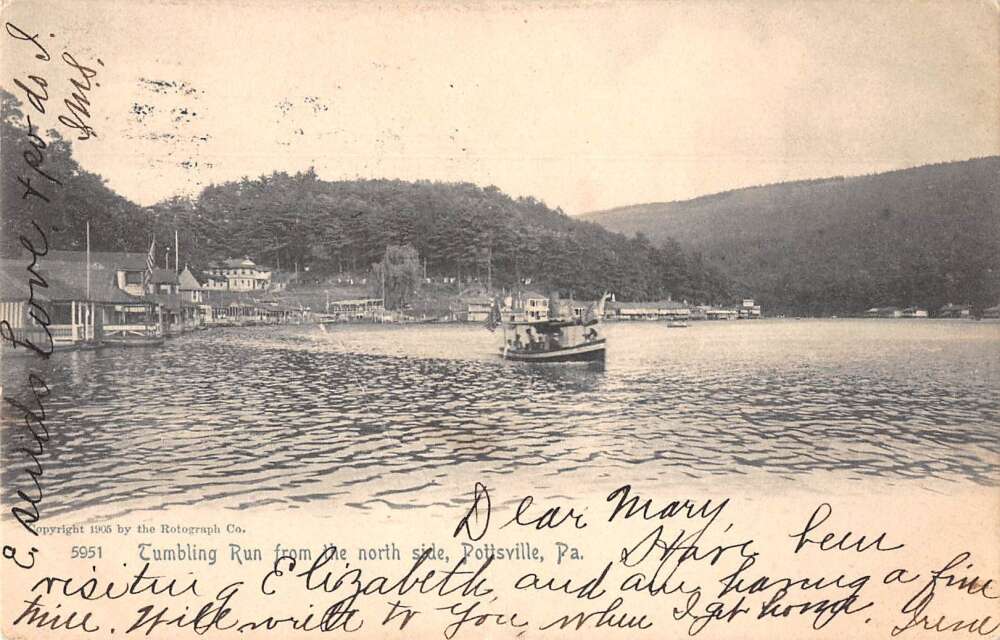 Copyright 1905 by the Rotograph Co.
5951 Tumbling Run from the north side, Pottsville, Pa.
Dear Mary,
Have been
visiting Elizabeth, and am having a fine
time. Will write to you when I get home. Irene
E. sends love & so do I.